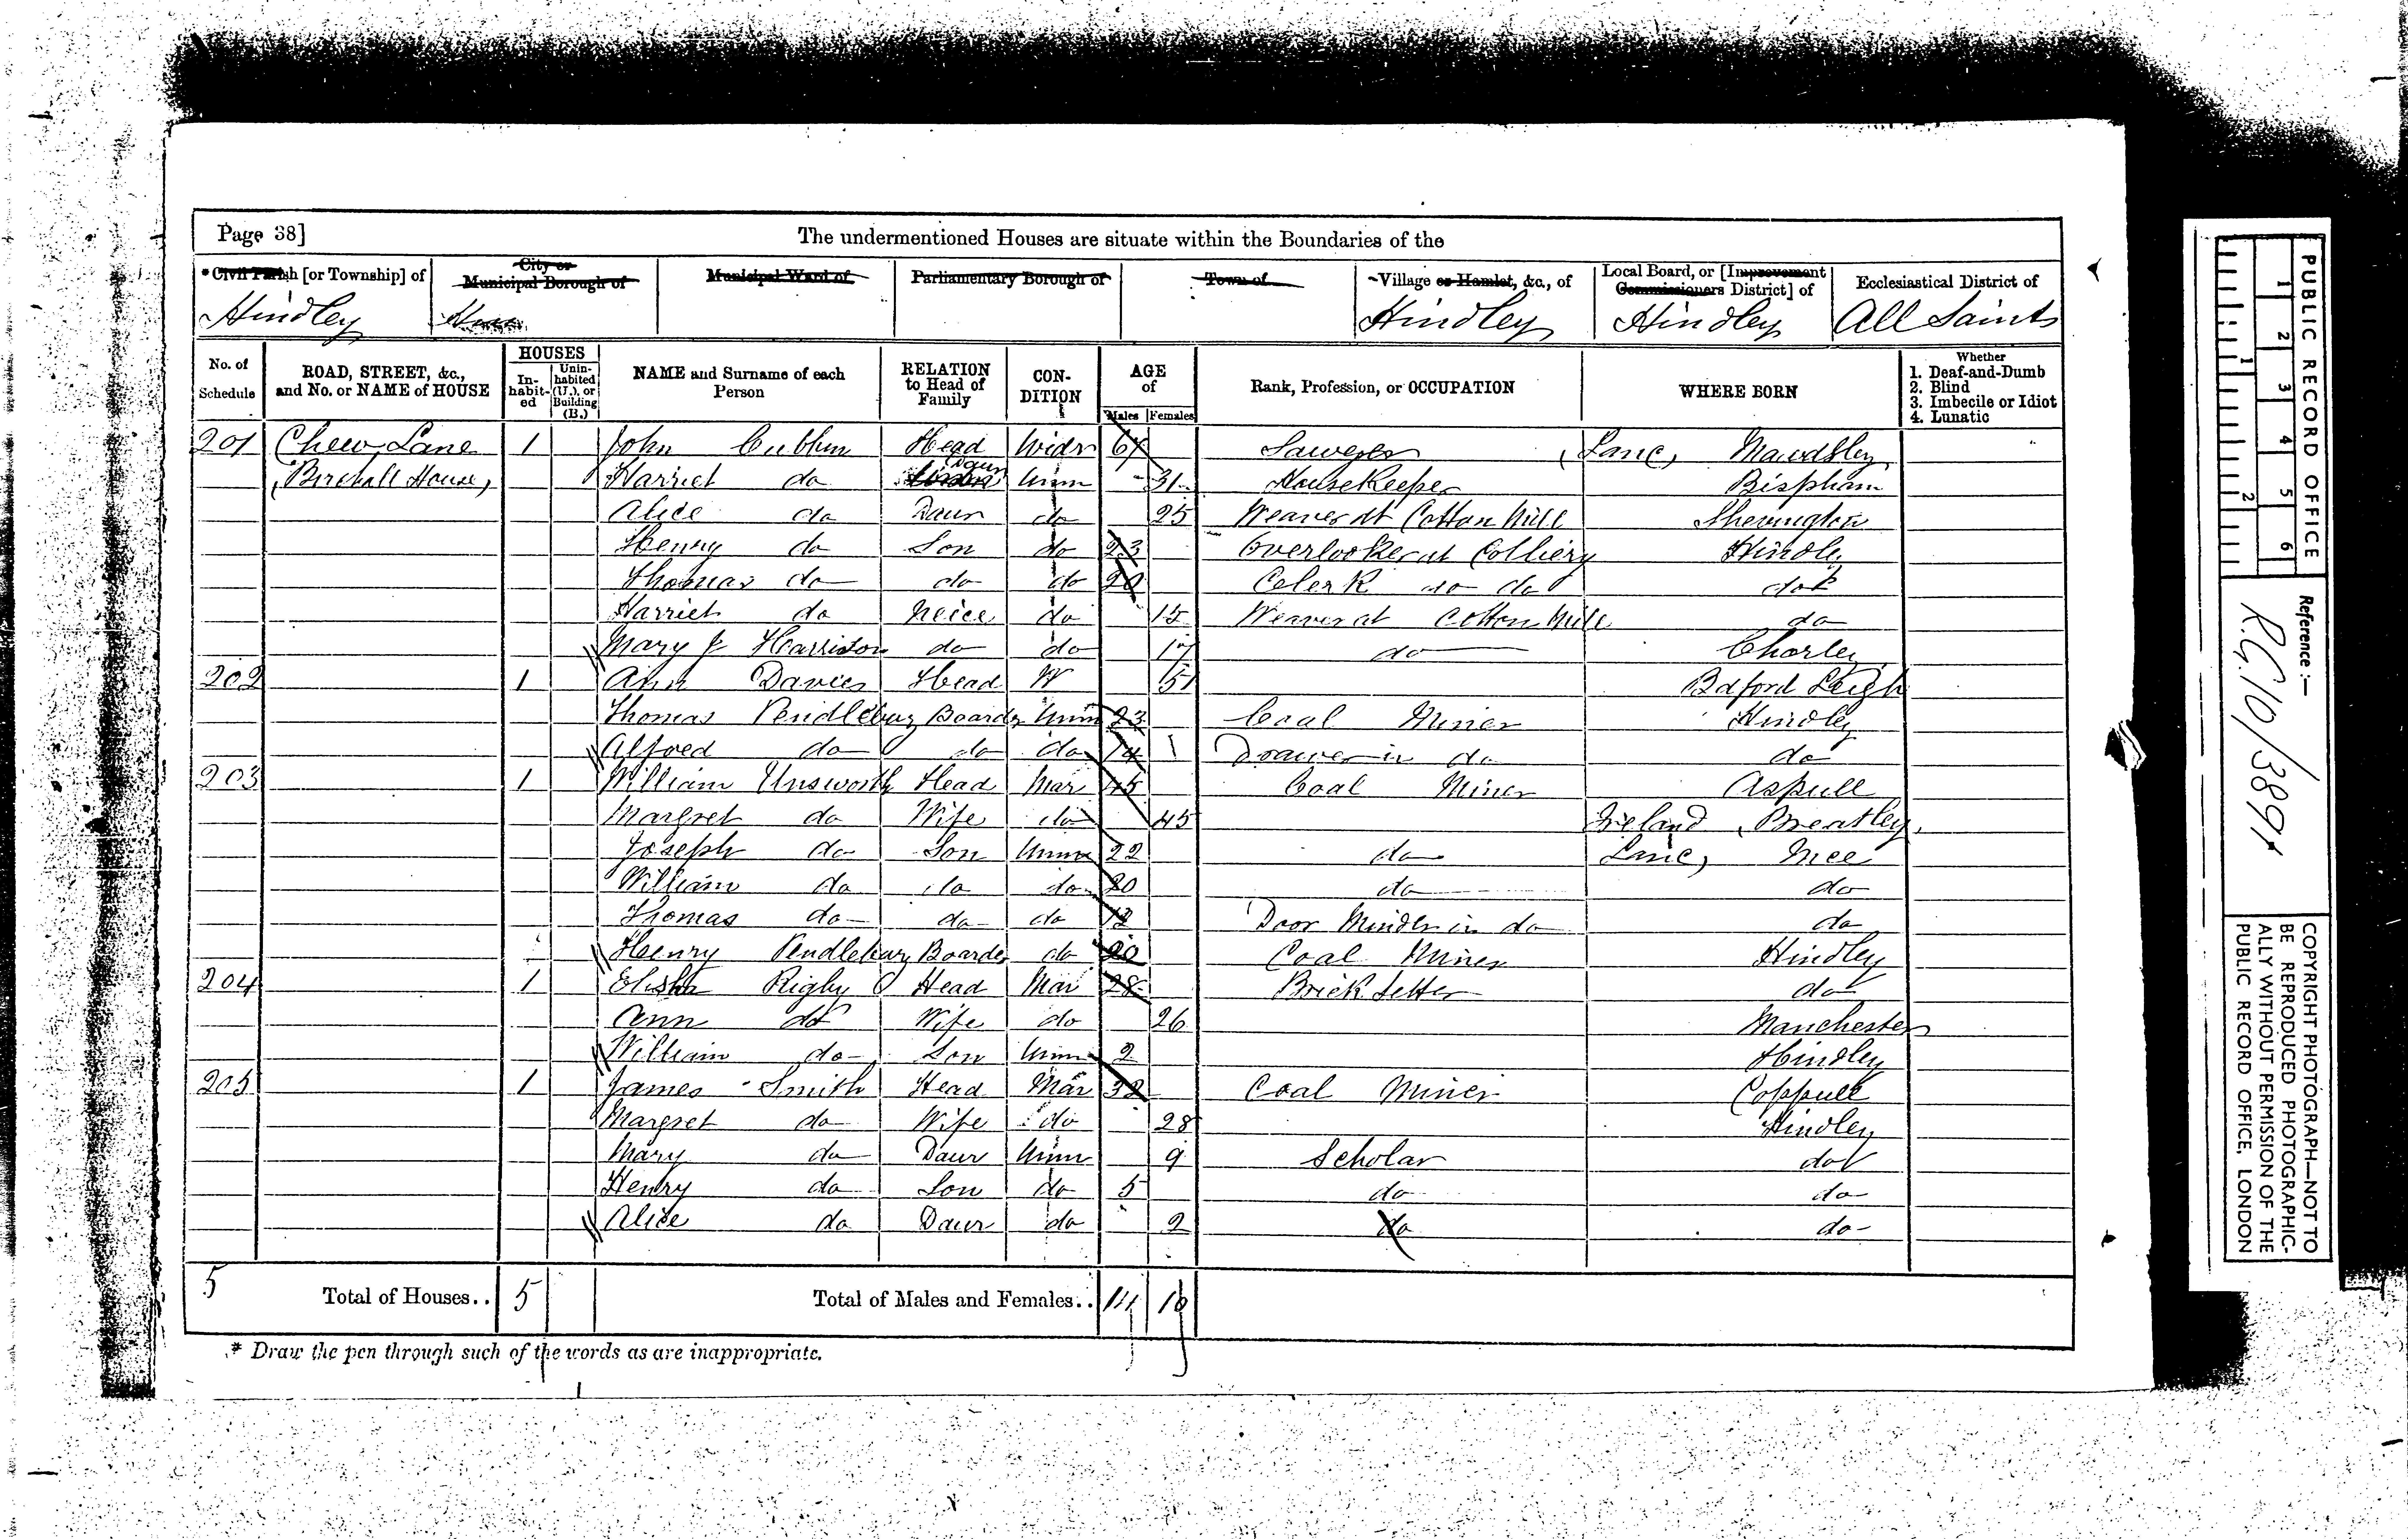 Page 38]
The undermentioned Houses are situate within the Boundaries of the
*Civil Parish [or Township] of
City or Municipal Borough of
Municipal Ward of
Parliamentary Borough of
Town of
Village or Hamlet, &c., of
Local Board, or [Improvement Commissioners District] of
Ecclesiastical District of
Hindley Hindley Hindley All Saints
No. of Schedule
ROAD, STREET, &c., and No. or NAME of HOUSE
HOUSES
In-habit-ed
Unin-habited (U.), or Building (B.)
NAME and Surname of each Person
RELATION to Head of Family
CON-DITION
AGE of
Males Females
Rank, Profession, or OCCUPATION
WHERE BORN
Whether
1. Deaf-and-Dumb
2. Blind
3. Imbecile or Idiot
4. Lunatic
201 Chew Lane 1 John Head Widr Lanc, Mawdsley
Birchall House, Harriet do Daur Unm 31 Housekeeper Bispham
Alice do Daur do 25 Weaver at Cotton Mill Shevington
Henry do Son do 23 Overlooker at Colliery Hindley
Thomas do do do 20 Celerk do do do
Harriet do Neice do 15 Weaver at Cotton Mill do
Mary J Harrison do do 17 do Chorley
202 1 Ann Davies Head W 51 Bdford Leigh
Thomas Pendlebury Boarder Unm 23 Coal Miner Hindley
Alfred do do do 14 Drawer in do do
203 1 William Unsworth Head Mar 45 Coal Miner Aspull
Margret do Wife do 45 Ireland
Joseph do Son Unm 22 do Lanc, Ince
William do do do 20 do do
Thomas do do do 12 Door Minder in do do
Henry Pendlebury Boarder do 20 Coal Miner Hindley
204 1 Elisha Rigby Head Mar 28 Brick Setter do
Ann do Wife do 26 Manchester
William do Son Unm 2 Hindley
205 1 James Smith Head Mar 32 Coal Miner Coppull
Margret do Wife do 28 Hindley
Mary do Daur Unm 9 Scholar do
Henry do Son do 5 do do
Alice do Daur do 2 do do
5 Total of Houses.. 5 Total of Males and Females.. 14 10
* Draw the pen through such of the words as are inappropriate.
PUBLIC RECORD OFFICE
1 2 3 4 5 6
1 2
Reference :—
R.G. 10/3891
COPYRIGHT PHOTOGRAPH—NOT TO
BE REPRODUCED PHOTOGRAPHIC-
ALLY WITHOUT PERMISSION OF THE
PUBLIC RECORD OFFICE, LONDON